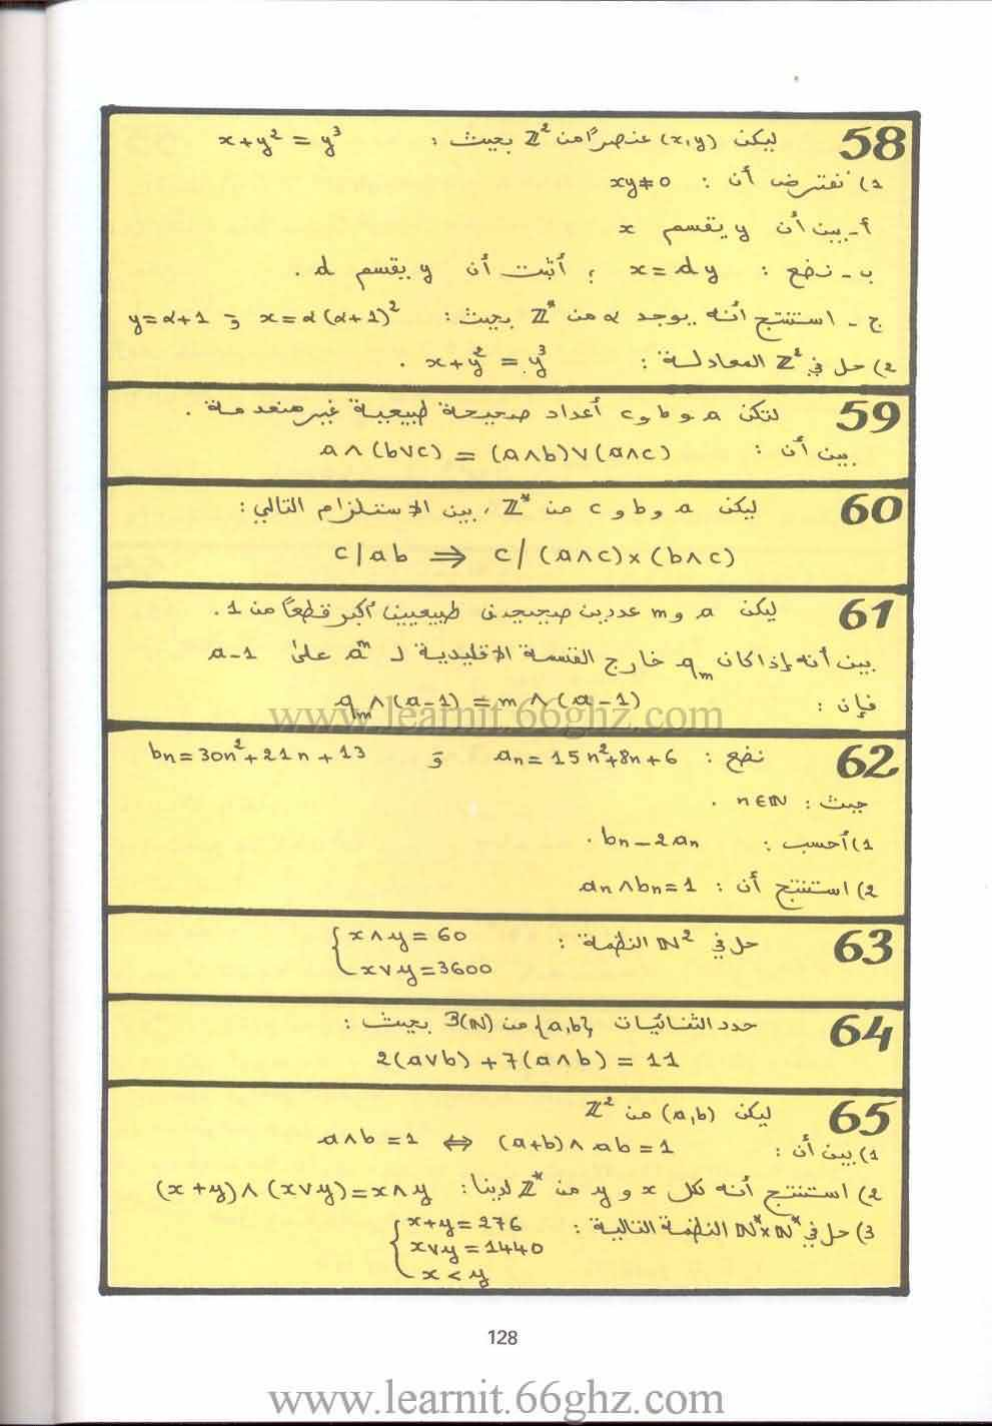 58 ليكن (x,y) عنصراً من ℤ² بحيث : x+y² = y³
1) نفترض أن : xy≠0
أ- بين أن y يقسم x
ب - نضع : x = dy ؛ أثبت أن y يقسم d .
ج - استنتج أنه يوجد α من ℤ* بحيث : x=α(α+1)² و y=α+1
2) حل في ℤ² المعادلة : x+y² = y³ .
59 لتكن a و b و c أعداد صحيحة طبيعية غير منعدمة .
بين أن : a∧(b∨c) = (a∧b)∨(a∧c)
60 ليكن a و b و c من ℤ* ، بين الاستلزام التالي :
c/ab ⇒ c/(a∧c)×(b∧c)
61 ليكن a و m عددين صحيحين طبيعيين أكبر قطعاً من 1 .
بين أنه إذا كان qₘ خارج القسمة الاقليدية لـ aᵐ على a-1
فإن : qₘ∧(a-1) = m∧(a-1)
www.learnit.66ghz.com
62 نضع : aₙ = 15n²+8n+6 و bₙ = 30n²+21n+13
حيث : n∈ℕ .
1) أحسب : bₙ-2aₙ .
2) استنتج أن : aₙ∧bₙ=1
63 حل في ℕ² النظمة : { x∧y = 60
x∨y = 3600
64 حدد الثنائيات {a,b} من 3(ℕ) بحيث :
2(a∨b) + 7(a∧b) = 11
65 ليكن (a,b) من ℤ²
1) بين أن : a∧b = 1 ⇔ (a+b)∧ab = 1
2) استنتج أنه لكل x و y من ℤ* لدينا : (x+y)∧(x∨y)=x∧y
3) حل في ℕ*×ℕ* النظمة التالية : { x+y = 276
x∨y = 1440
x < y
128
www.learnit.66ghz.com